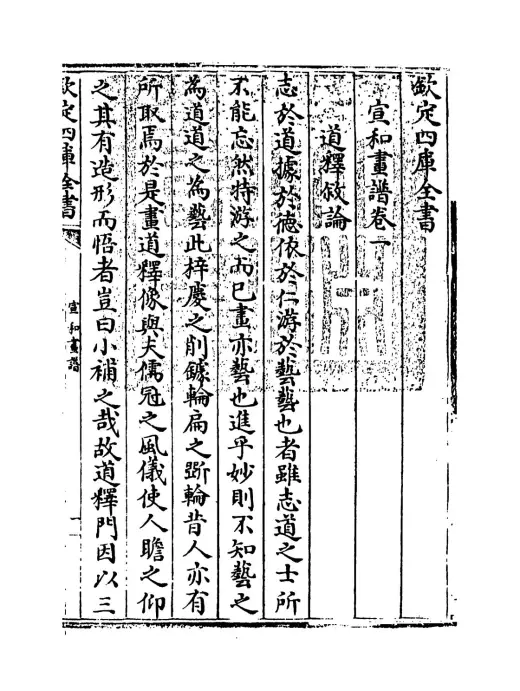 欽定四庫全書
宣和畫譜卷一
道釋敘論
志於道據於德依於仁游於藝藝也者雖志道之士所
不能忘然特游之而已畫亦藝也進乎妙則不知藝之
為道道之為藝此梓慶之削鐻輪扁之斵輪昔人亦有
所取焉於是畫道釋像與夫儒冠之風儀使人瞻之仰
之其有造形而悟者豈曰小補之哉故道釋門因以三
欽定四庫全書
宣和畫譜
一